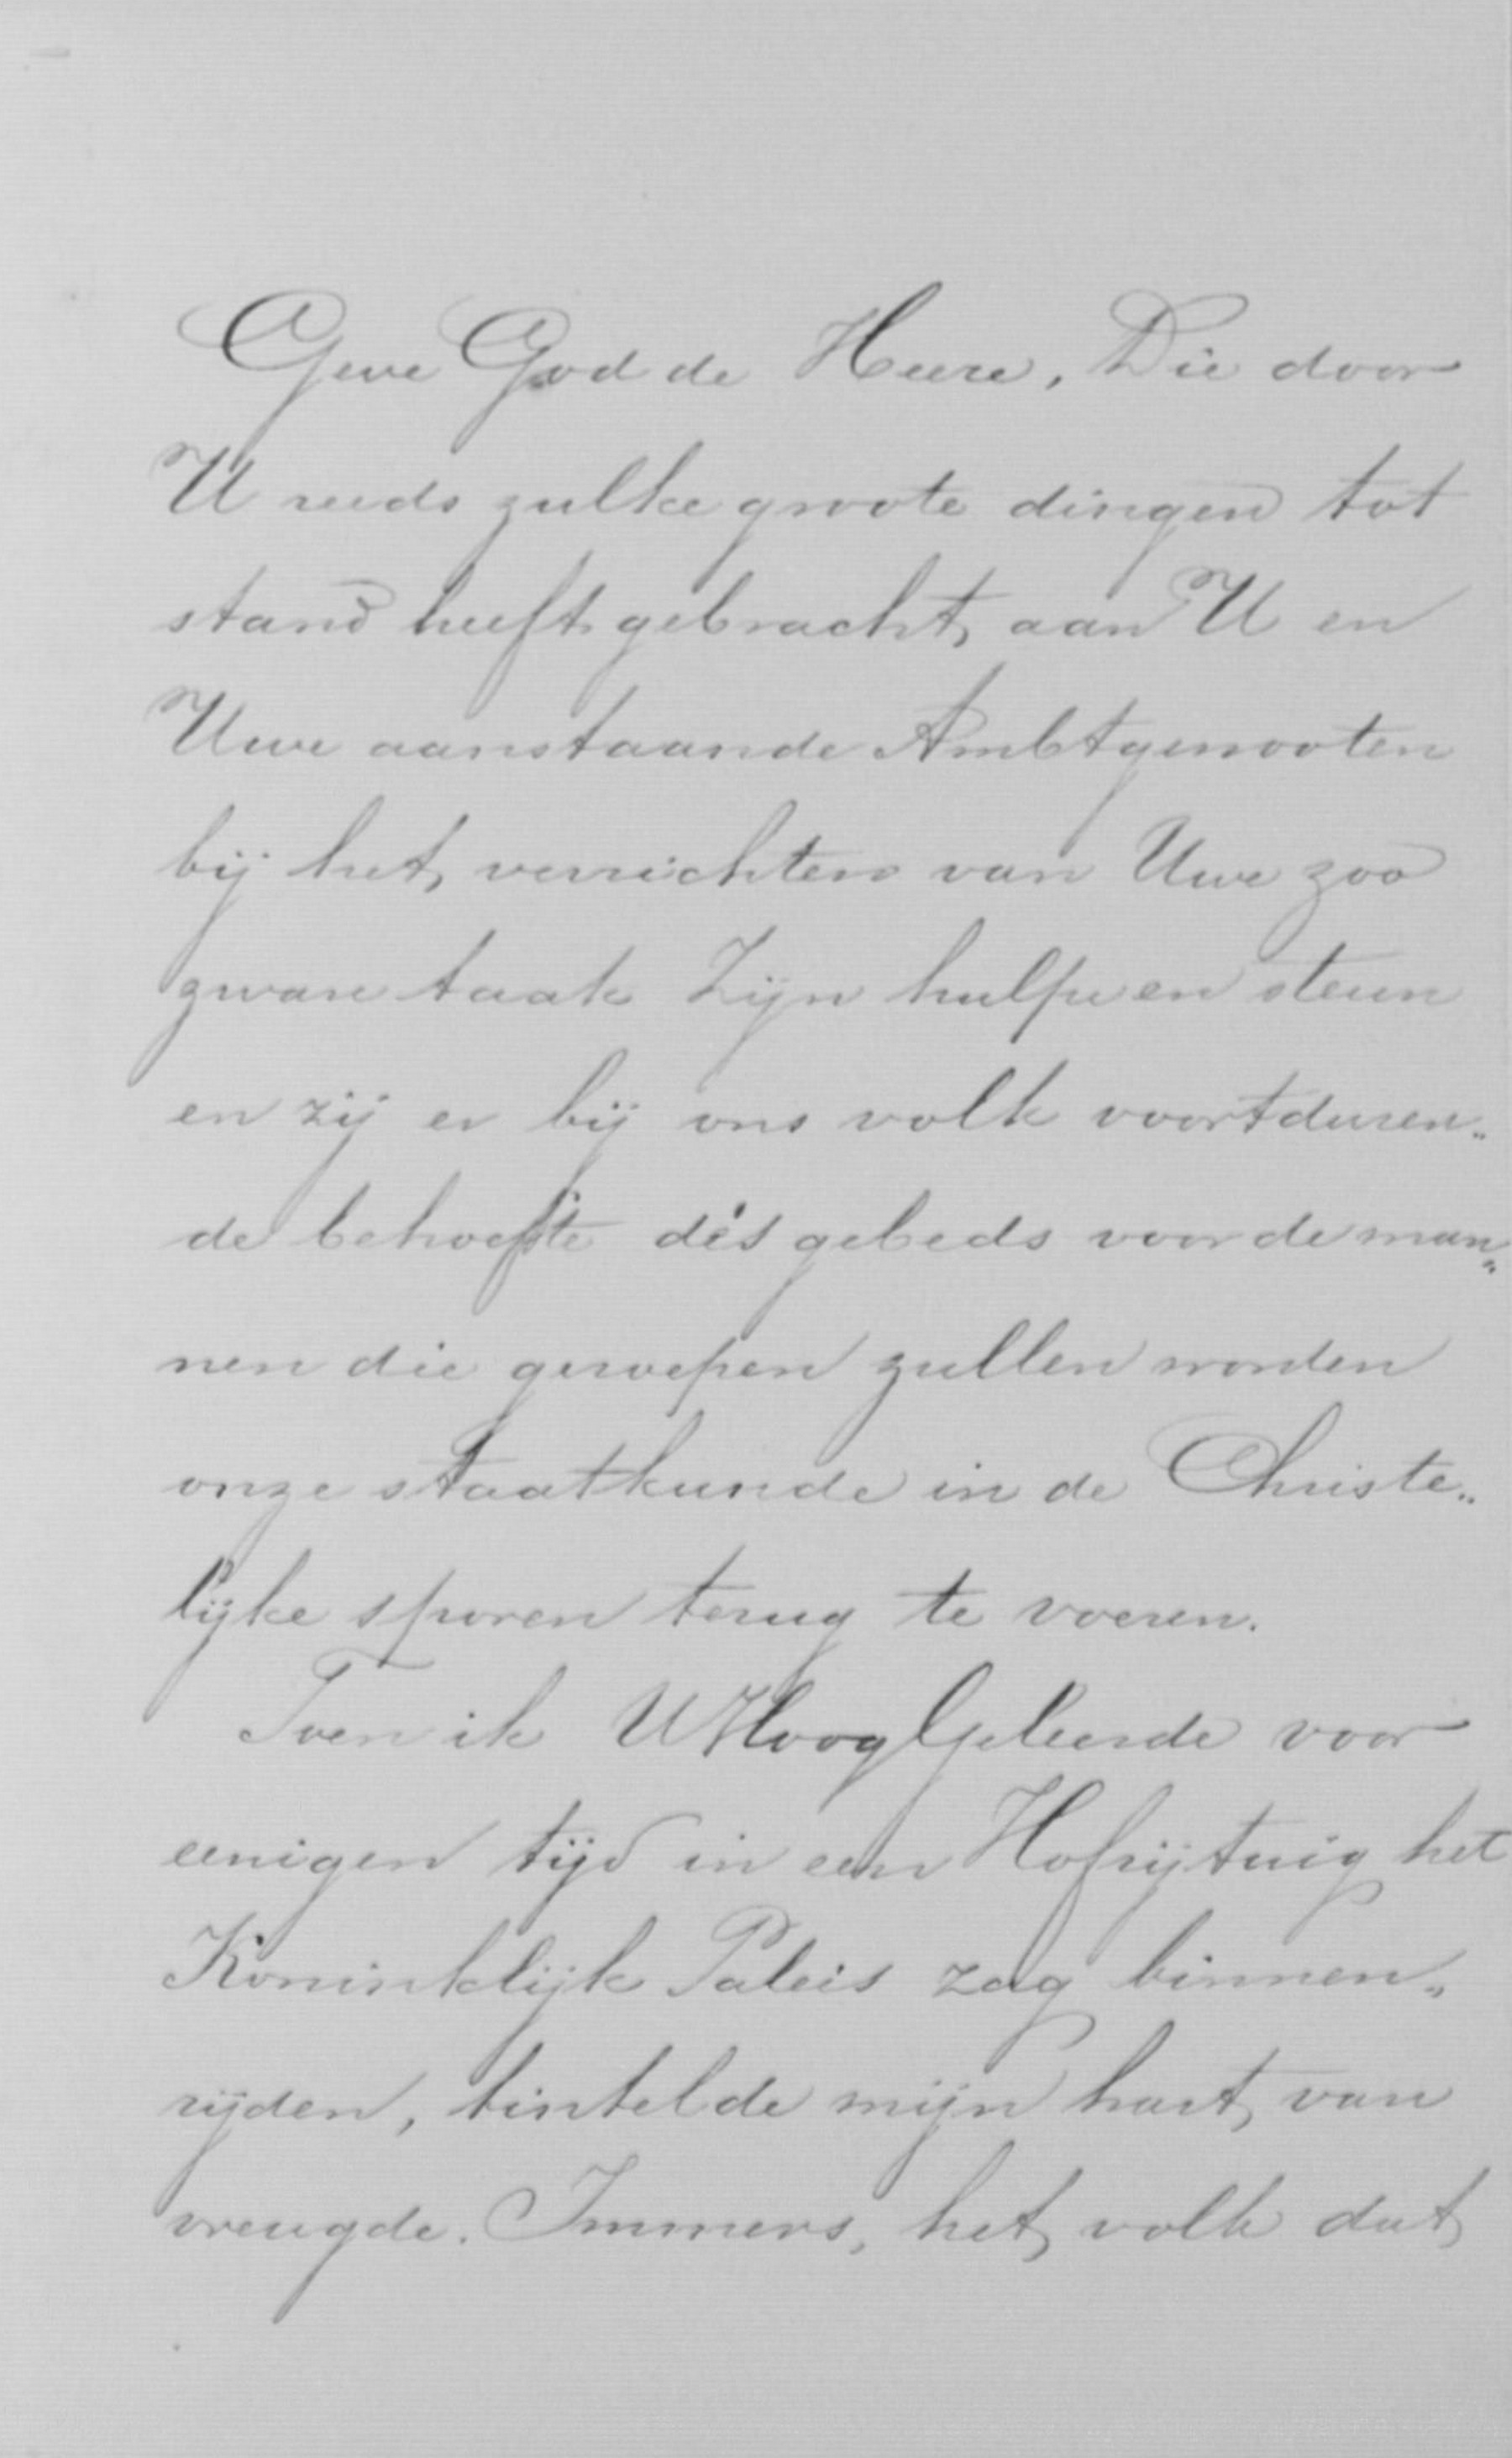 Geve God de Heere, Die door
U reeds zulke groote dingen tot
stand heeft gebracht, aan U en
Uwe aanstaande Ambtgenooten
bij het verrichten van Uwe zoo
zware taak Zijn hulpe en steun
en zij er bij ons volk voortduren„
de behoefte dés gebeds voor de man„
nen die geroepen zullen worden
onze staatkunde in de Christe„
lijke sporen terug te voeren.
Toen ik UHoogGeleerde voor
eenigen tijd in een Hofrijtuig het
Koninklijk Paleis zag binnen„
rijden, tintelde mijn hart van
vreugde. Immers, het volk dat